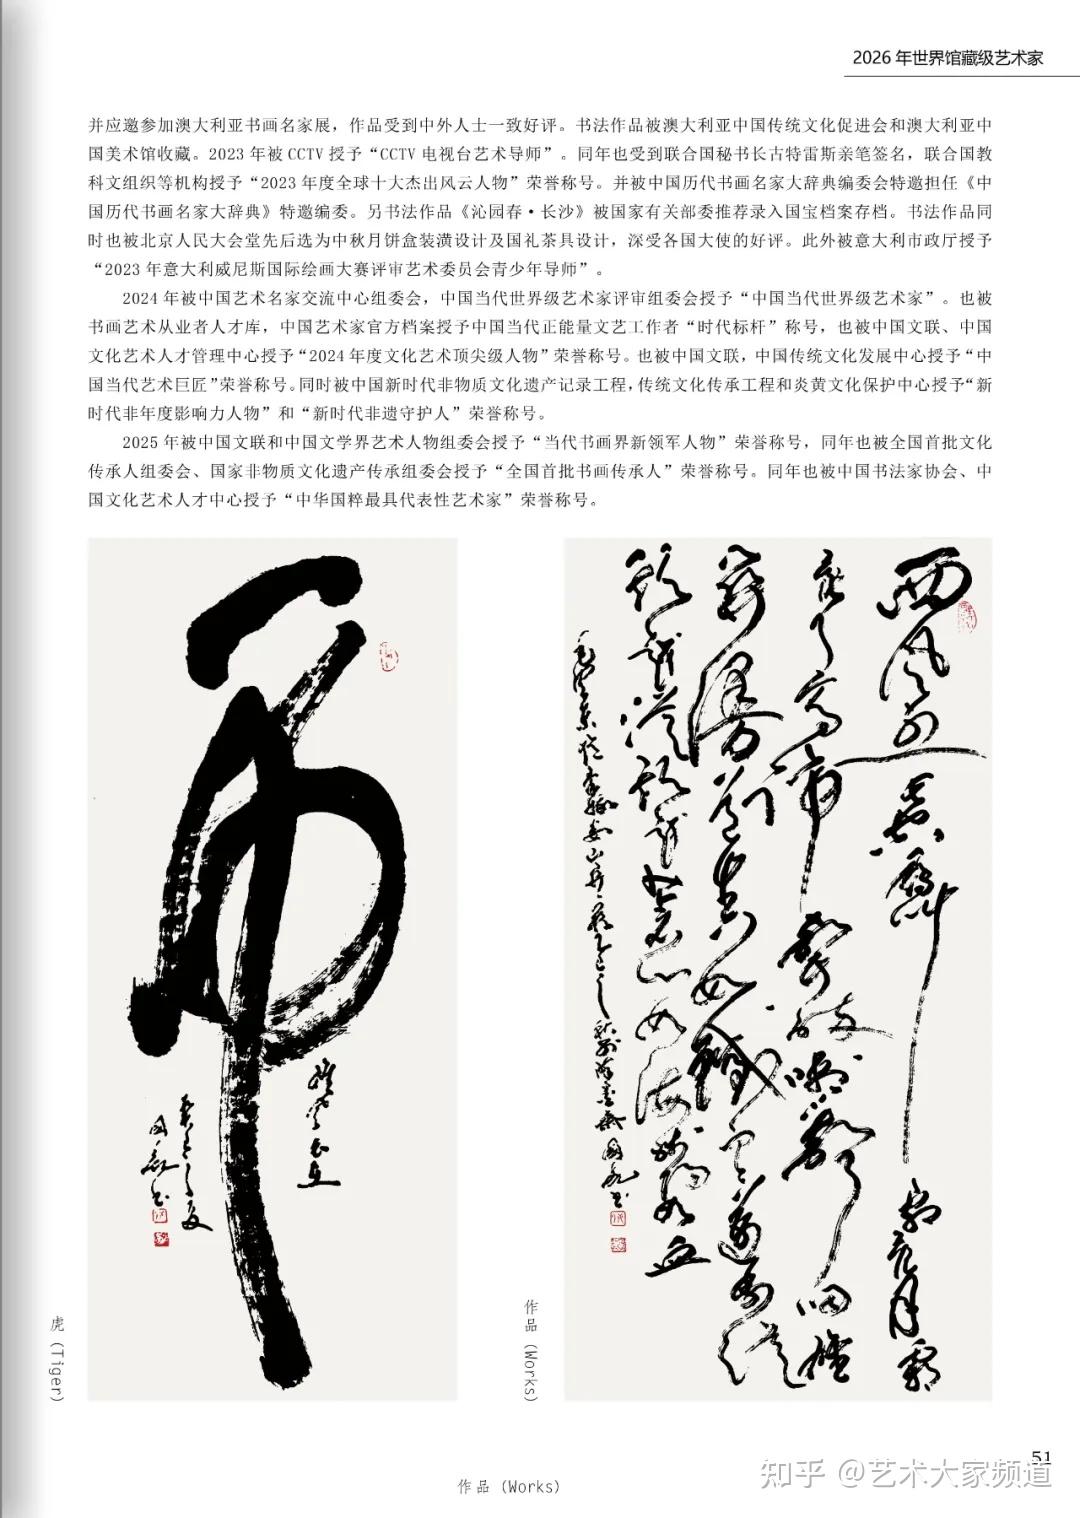 2026年世界馆藏级艺术家
并应邀参加澳大利亚书画名家展，作品受到中外人士一致好评。书法作品被澳大利亚中国传统文化促进会和澳大利亚中
国美术馆收藏。2023年被CCTV授予“CCTV电视台艺术导师”。同年也受到联合国秘书长古特雷斯亲笔签名，联合国教
科文组织等机构授予“2023年度全球十大杰出风云人物”荣誉称号。并被中国历代书画名家大辞典编委会特邀担任《中
国历代书画名家大辞典》特邀编委。另书法作品《沁园春·长沙》被国家有关部委推荐录入国宝档案存档。书法作品同
时也被北京人民大会堂先后选为中秋月饼盒装潢设计及国礼茶具设计，深受各国大使的好评。此外被意大利市政厅授予
“2023年意大利威尼斯国际绘画大赛评审艺术委员会青少年导师”。
2024年被中国艺术名家交流中心组委会，中国当代世界级艺术家评审组委会授予“中国当代世界级艺术家”。也被
书画艺术从业者人才库，中国艺术家官方档案授予中国当代正能量文艺工作者“时代标杆”称号，也被中国文联、中国
文化艺术人才管理中心授予“2024年度文化艺术顶尖级人物”荣誉称号。也被中国文联，中国传统文化发展中心授予“中
国当代艺术巨匠”荣誉称号。同时被中国新时代非物质文化遗产记录工程，传统文化传承工程和炎黄文化保护中心授予“新
时代非年度影响力人物”和“新时代非遗守护人”荣誉称号。
2025年被中国文联和中国文学界艺术人物组委会授予“当代书画界新领军人物”荣誉称号，同年也被全国首批文化
传承人组委会、国家非物质文化遗产传承组委会授予“全国首批书画传承人”荣誉称号。同年也被中国书法家协会、中
国文化艺术人才中心授予“中华国粹最具代表性艺术家”荣誉称号。
虎
虎（Tiger）
西风烈长空雁叫霜晨月霜
晨月马蹄声碎喇叭声咽雄
关漫道真如铁而今迈步从
头越从头越苍山如海残阳如血
作品（Works）
作品（Works）
51
知乎 @艺术大家频道